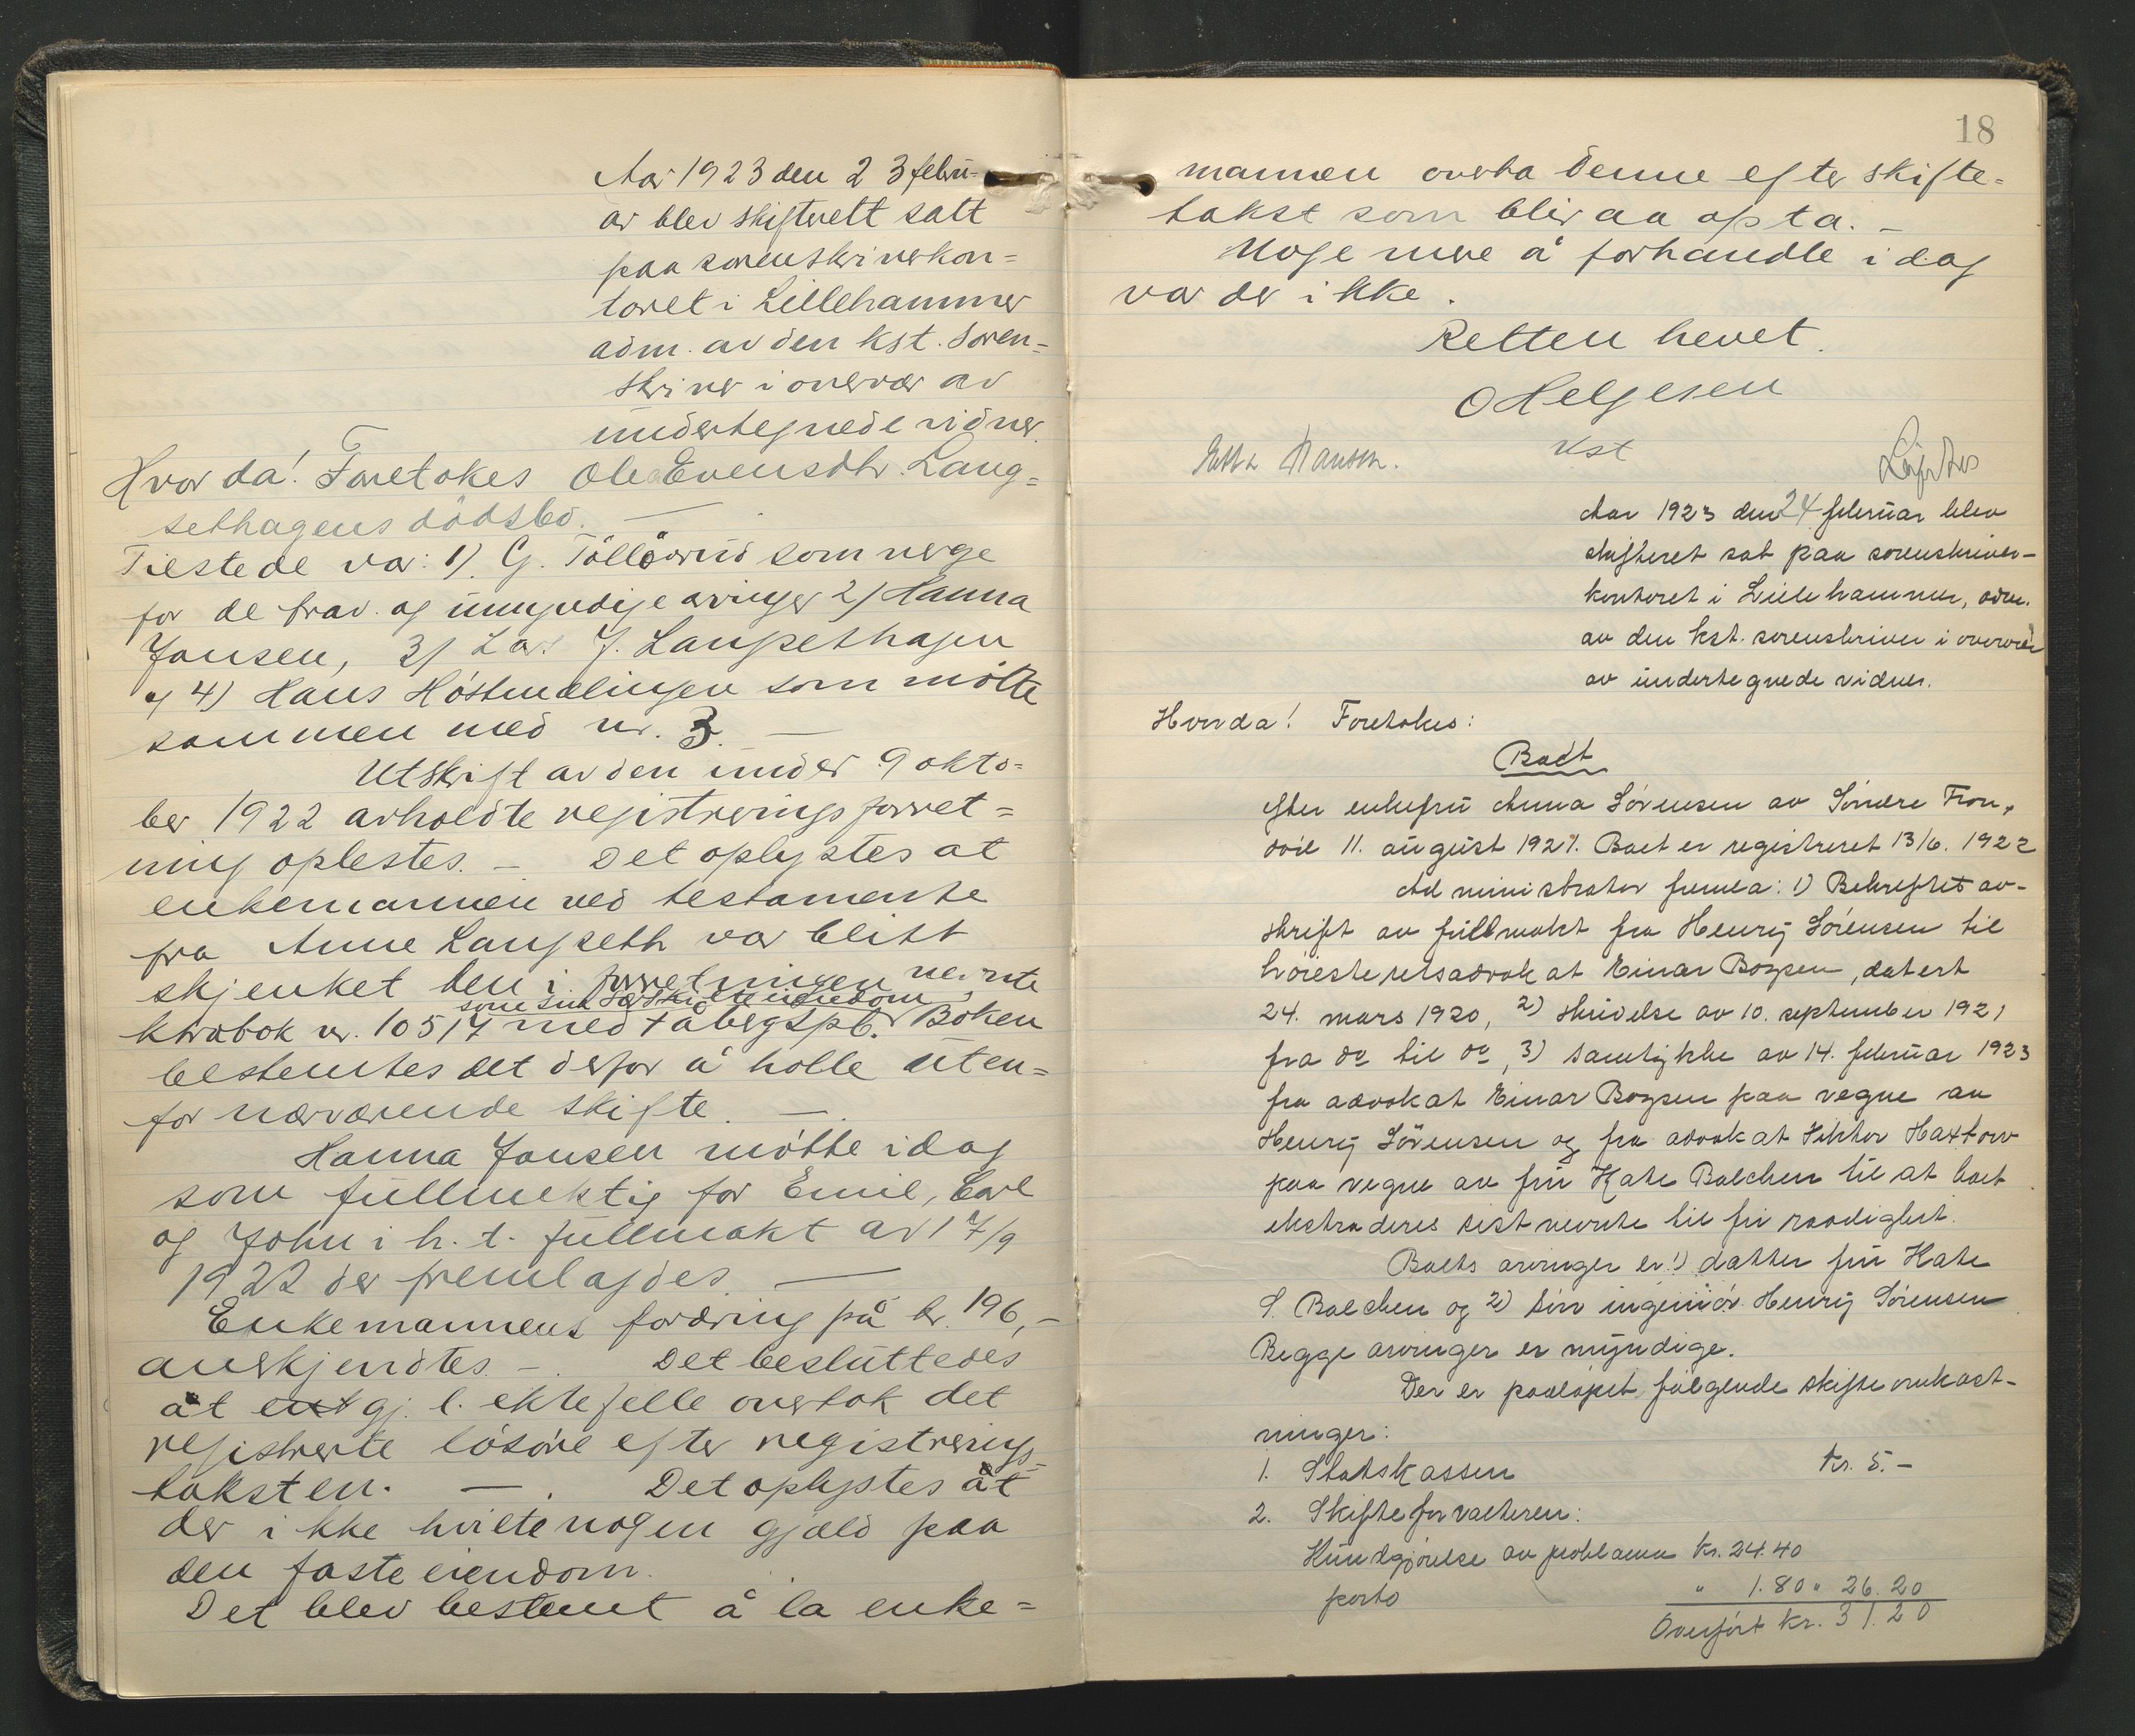 Aar 1923 den 23 febru-
ar blev skifterett satt
paa sorenskriverkon=
toret i Lillehammer
adm. av den kst. soren=
skriver i overvær av
undertegnede vidner.
Hvor da! Foretokes Ole Evensdtr. Lang=
sethagens dödsbo. —
Tilstede var: 1) G. som verge
for de frav. og umyndige arvinger 2) Hanna
Jonsen, 3) Lars J. Langsethagen
og 4) Hans Höstmælingen som mötte
sammen med nr. 3. —
Utskrift av den under 9 okto=
ber 1922 avholdte registreringsforret=
ning oplestes. – Det oplystes at
enkemannen ved testamente
fra Anne Langseth var blitt
skjenket den i forretningen nevnte
som sin særskilte eiendom
kvabok nr. 10517 med Fåbergs spb. Boken
bestemtes det derfor å holle uten=
for nærværende skifte. —
Hanna Jonsen mötte idag
som fullmektig for Emil, Carl
og John i h. t. fullmakt av 17/9
1922 der fremlagdes. —
Enkemannens fordring på kr. 196,-
anerkjendtes. – Det besluttedes
at gj. l. ektefelle overtok det
registrerte lösöre efter registrerings-
taksten. — . Det oplystes at
der ikke hvilte nogen gjæld paa
den faste eiendom.
Det blev bestemt å la enke=
18
mannen overta denne efter skifte=
takst som blir aa opta. –
Noge mere å forhandle i dag
var der ikke.
Retten hevet.
O Helgesen
kst
Hansen.
Aar 1923 den 24 februar blev
skifteret sat paa sorenskriver-
kontoret i Lillehammer, adm.
av den kst. sorenskriver i overvær
av undertegnede vidner.
Hvorda! Foretokes:
Boet
efter enkefru Anna Sörensen av Söndre Fron,
död 11. august 1921. Boet er registreret 13/6. 1922
Administrator fremla: 1) Bekreftet av-
skrift av fullmakt fra Henrij Sörensen til
höiesteretsadvokat Einar Bozsen, datert
24. mars 1920, 2) skrivelse av 10. september 1921
fra do til do, 3) samtykke av 14. februar 1923
fra advokat Einar Bozsen paa vegne av
Henrij Sörensen og fra advokat Haxtow
paa vegne av fru Kate Balchen til at boet
ekstraderes sistnevnte til fri raadighet.
Boets arvinger er 1) datter fru Kate
S. Balchen og 2) sön ingeniör Henrij Sörensen
Begge arvinger er myndige.
Der er paalöpet fölgende skifteomkost-
ninger:
1. Statskassen kr. 5.–
2. Skifteforvalteren:
Kundgjörelse av proklama kr. 24.40
porto " 1.80 " 26.20
Overfört kr. 31.20